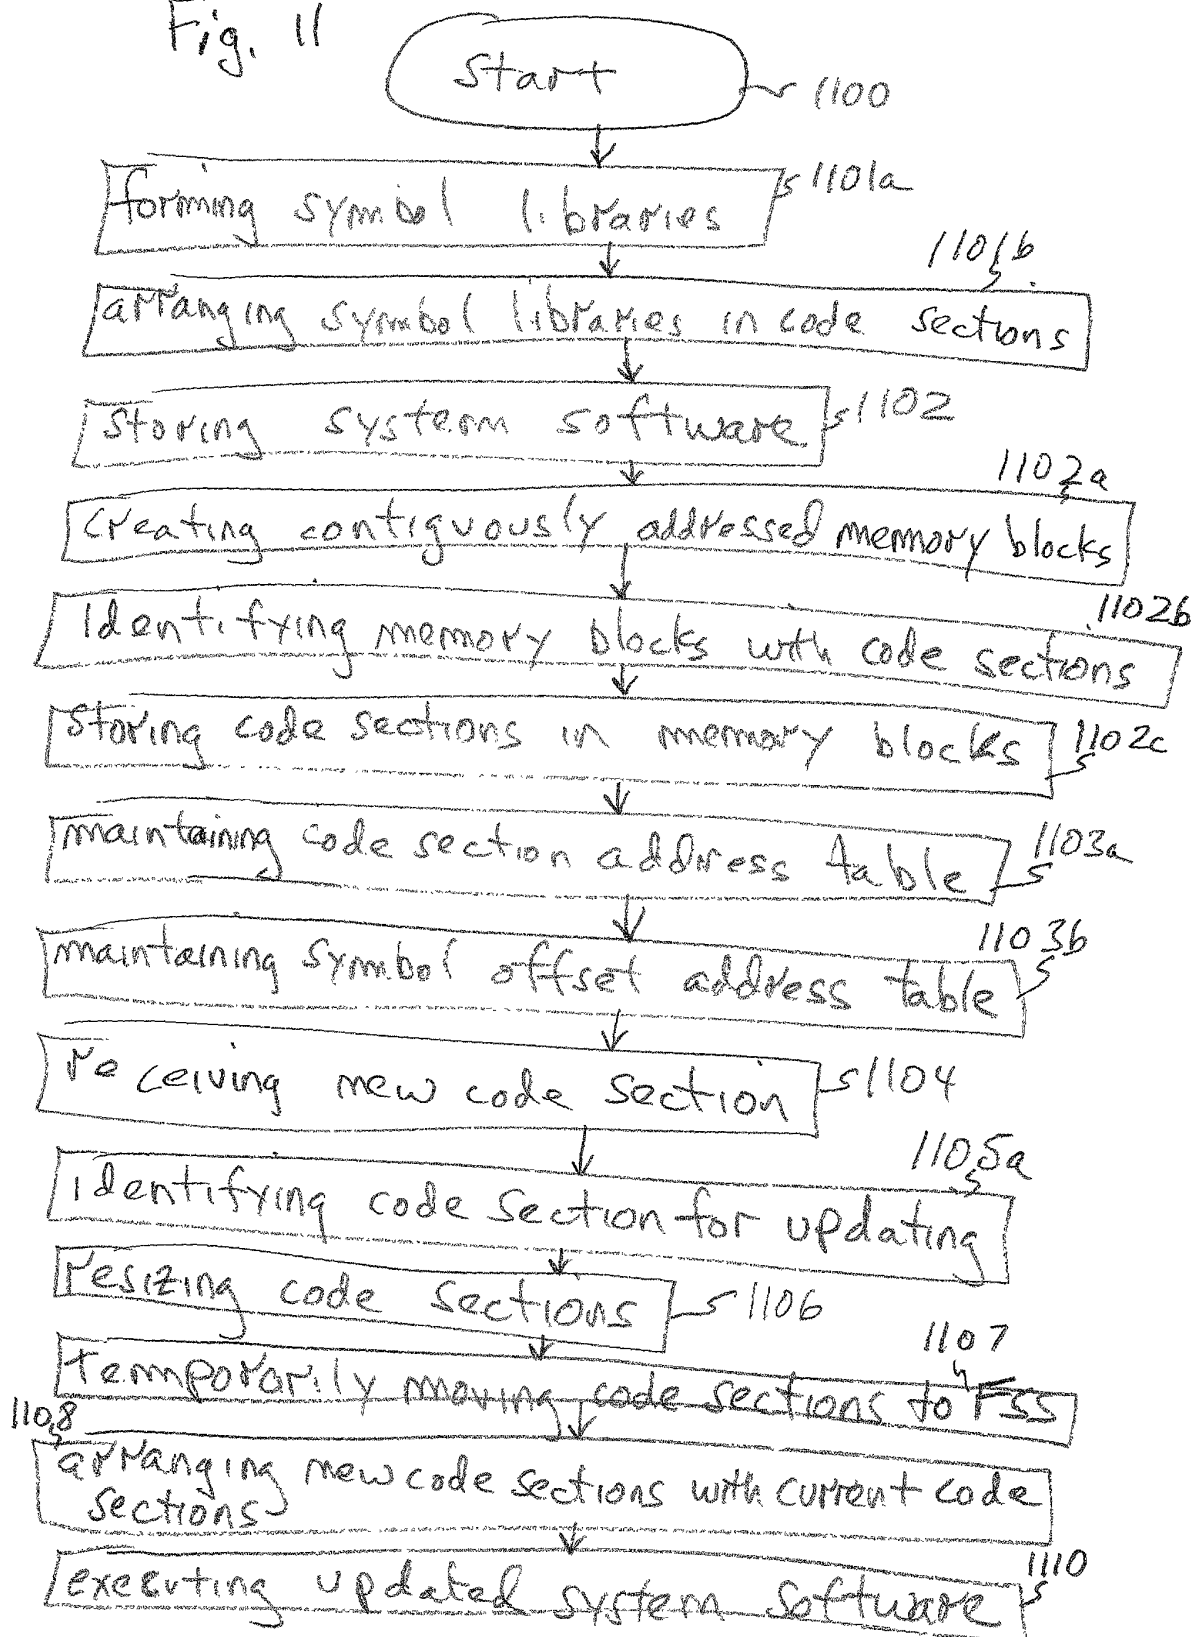 Fig. 11
Start
1100
forming symbol libraries
1101a
1101b
arranging symbol libraries in code sections
storing system software
1102
1102a
creating contiguously addressed memory blocks
1102b
Identifying memory blocks with code sections
storing code sections in memory blocks
1102c
maintaining code section address table
1103a
1103b
maintaining symbol offset address table
receiving new code section
1104
1105a
identifying code section for updating
resizing code sections
1106
1107
temporarily moving code sections to FSS
1108
arranging new code sections with current code
sections
1110
executing updated system software